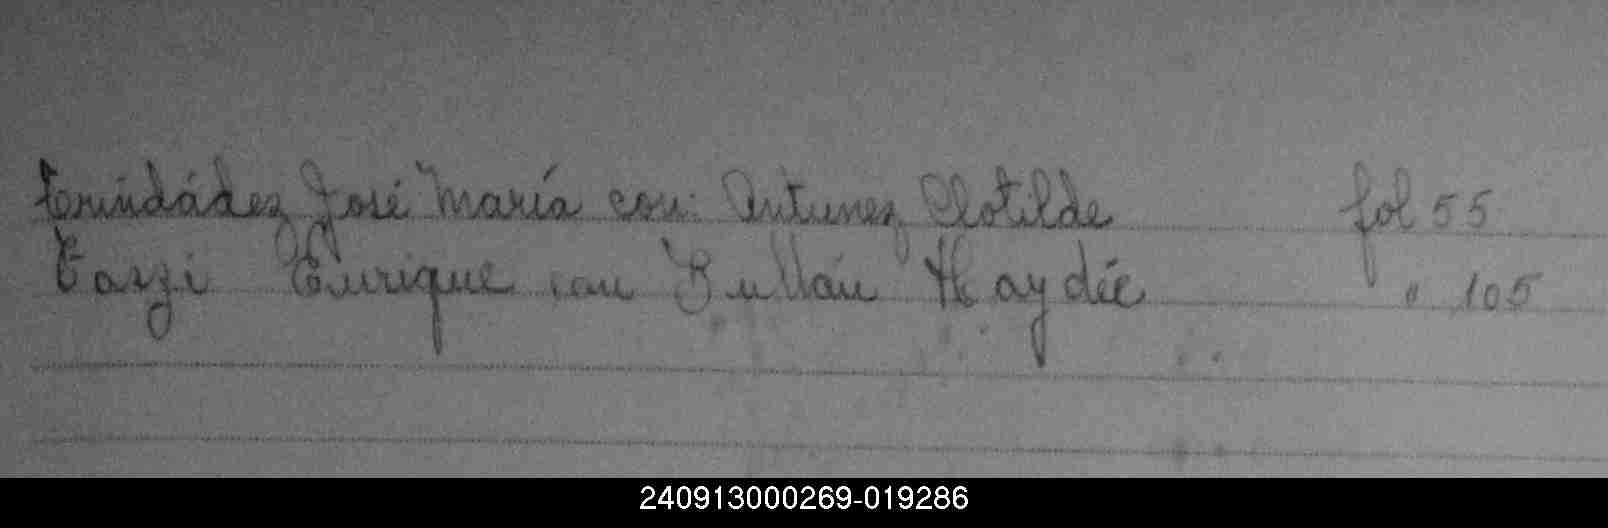 Trinidádez José María con: Antunez Clotilde fol 55
Tarzi Enrique con Bullán Haydée " 105
240913000269-019286